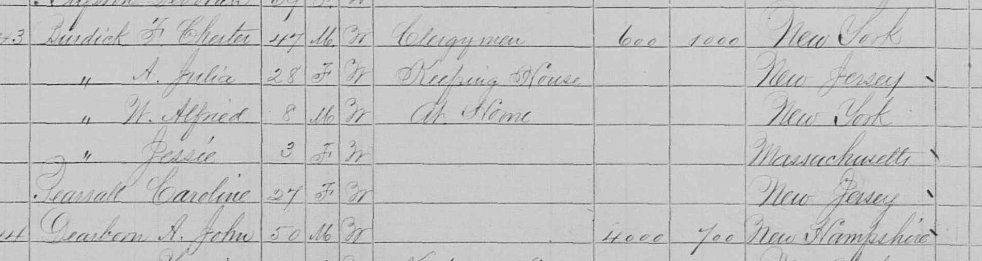 43 Burdick F Chester 47 M W Clergyman 600 1000 New York
" A. Julia 28 F W Keeping House New Jersey
" W. Alfred 8 M W At Home New York
" Jessie 3 F W Massachusetts
Pearsall Caroline 27 F W New Jersey
44 Dearborn A. John 50 M W 4000 700 New Hampshire